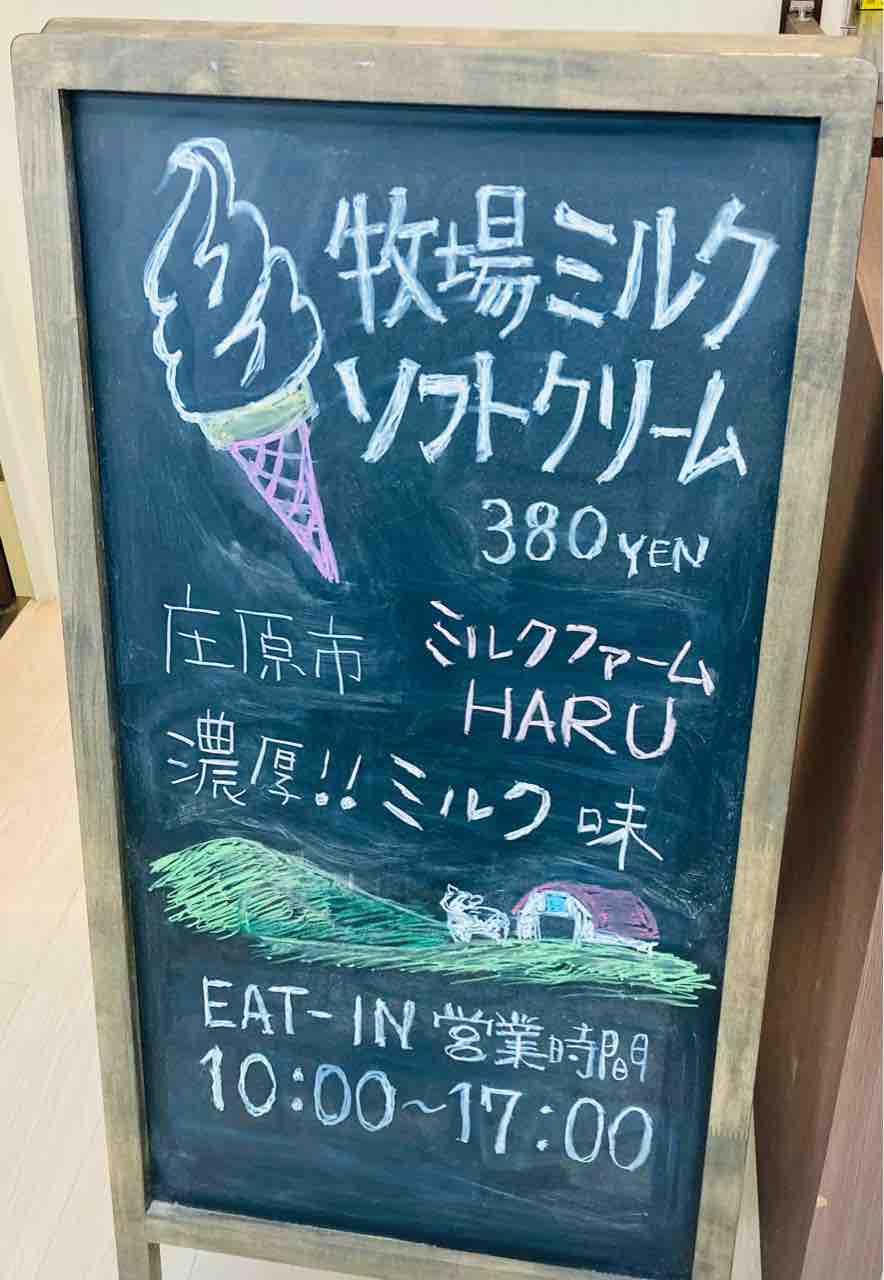 牧場ミルク
ソフトクリーム
380 YEN
庄原市 ミルクファーム
HARU
濃厚!! ミルク味
EAT-IN 営業時間
10:00~17:00